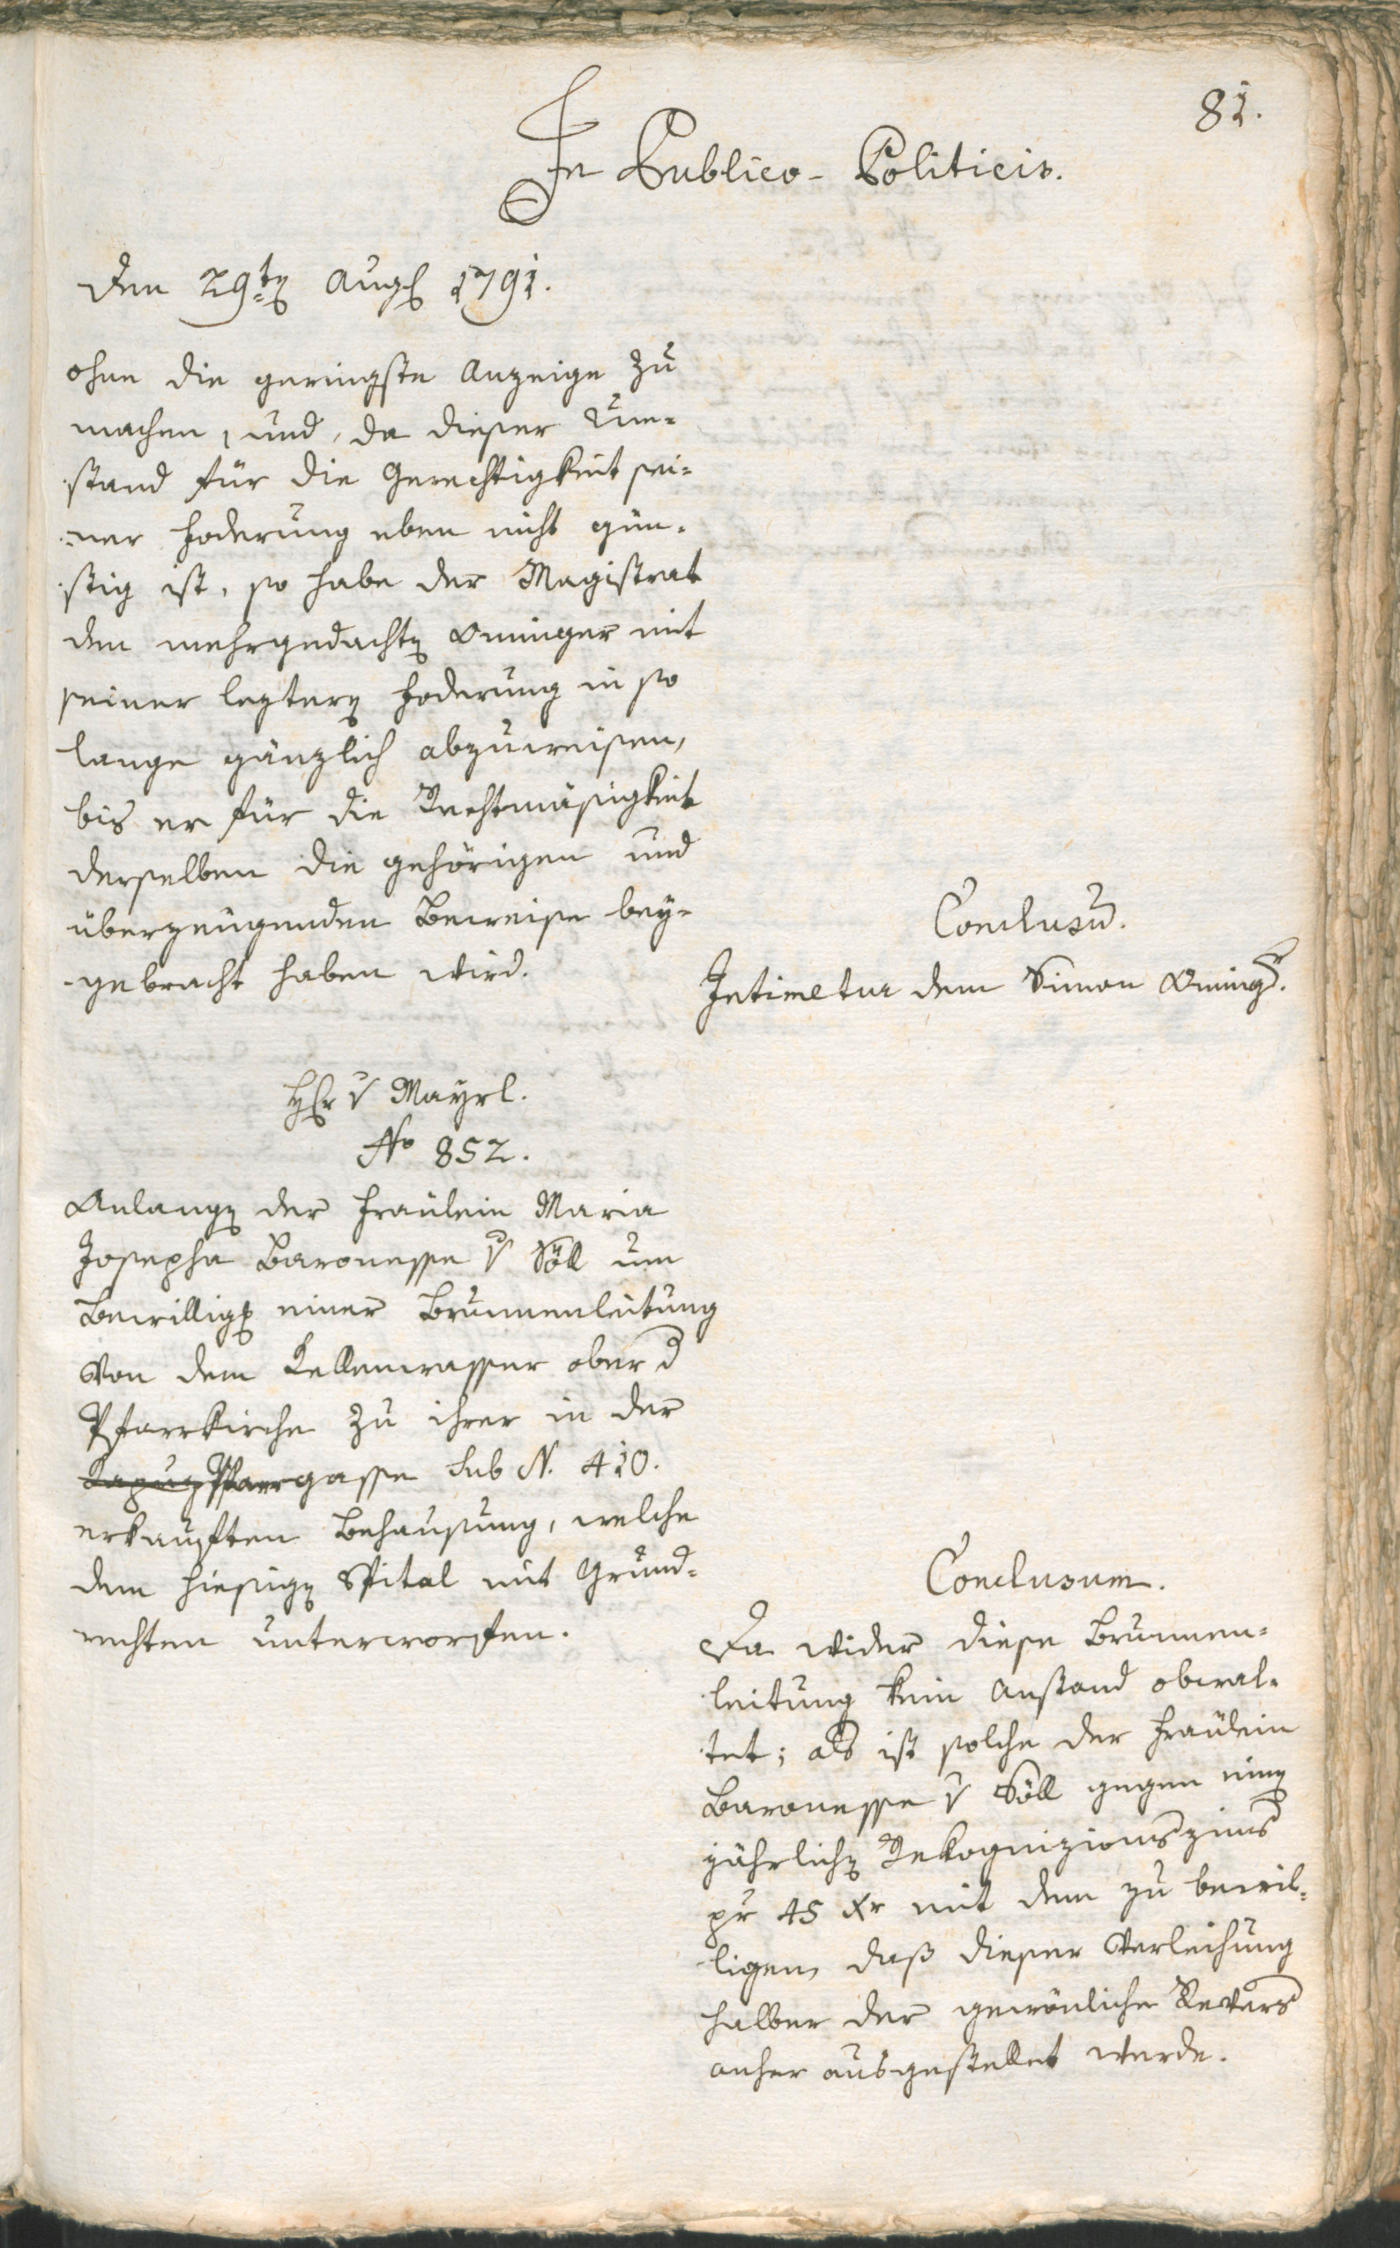 81.
In Publico-Politicis.
Den 29ten Augt 1791.
ohne die geringste Anzeige zu
machen, und, da dieser Um-
stand für die Gerechtigkeit sei-
ner Foderung eben nicht gün-
stig ist, so habe der Magistrat
den mehrgedachten Oninger mit
seiner leztern Foderung in so
lange gänzlich abzuweisen,
bis er für die Rechtmäsigkeit
derselben die gehörigen und
überzeugenden Beweise bey-
gebracht haben wird.
Conclusum.
Intimetur dem Simon Oninger.
Hr v Mayrl.
No 852.
Anlangen der Fraülein Maria
Josepha Baronesse v Söll um
Bewilligung einer Brunnenleitung
von dem Kellenwasser ober d
Pfarrkirche zu ihrer in der
Kapuz Pfarrgasse sub N. 410.
erkauften Behausung, welche
dem hiesigen Spital mit Grund-
rechten unterworfen.
Conclusum.
Da wider diese Brunnen-
leitung kein Anstand obwal-
tet; als ist solche der Fraülein
Baronesse v Söll gegen einen
jährlichen Rekognizionszins
pr 45 Xr mit dem zu bewil-
ligen, daß dieser Verleihung
halber der gewönliche Revers
anher ausgestellet werde.